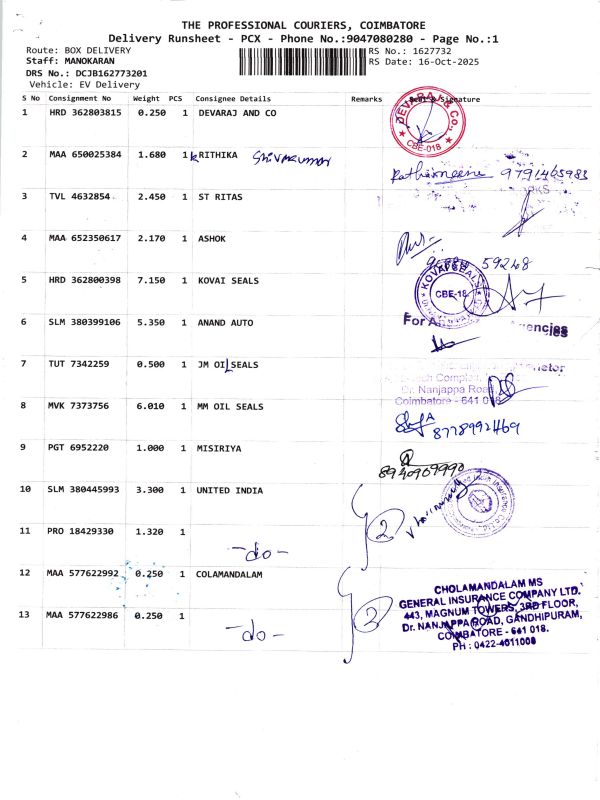 THE PROFESSIONAL COURIERS, COIMBATORE
Delivery Runsheet - PCX - Phone No.:9047080280 - Page No.:1
Route: BOX DELIVERY RS No.: 1627732
Staff: MANOKARAN RS Date: 16-Oct-2025
DRS No.: DCJB162773201
Vehicle: EV Delivery
S No Consignment No Weight PCS Consignee Details Remarks Seal & Signature
1 HRD 362803815 0.250 1 DEVARAJ AND CO
DEVARAJ & Co., CBE-018
2 MAA 650025384 1.680 1 KRITHIKA Sivakumar
9791465983
3 TVL 4632854 2.450 1 ST RITAS
4 MAA 652350617 2.170 1 ASHOK
59248
5 HRD 362800398 7.150 1 KOVAI SEALS
KOVAI SEALS CBE-18
6 SLM 380399106 5.350 1 ANAND AUTO
For A encies
7 TUT 7342259 0.500 1 JM OIL SEALS
Dr. Nanjappa Road
Coimbatore - 641 018
8 MVK 7373756 6.010 1 MM OIL SEALS
8778992469
9 PGT 6952220 1.000 1 MISIRIYA
8940969990
10 SLM 380445993 3.300 1 UNITED INDIA
2
11 PRO 18429330 1.320 1
-do-
12 MAA 577622992 0.250 1 COLAMANDALAM
2
13 MAA 577622986 0.250 1
-do-
CHOLAMANDALAM MS
GENERAL INSURANCE COMPANY LTD.
443, MAGNUM TOWERS, 3RD FLOOR,
Dr. NANJAPPA ROAD, GANDHIPURAM,
COIMBATORE - 641 018.
PH : 0422-4011008